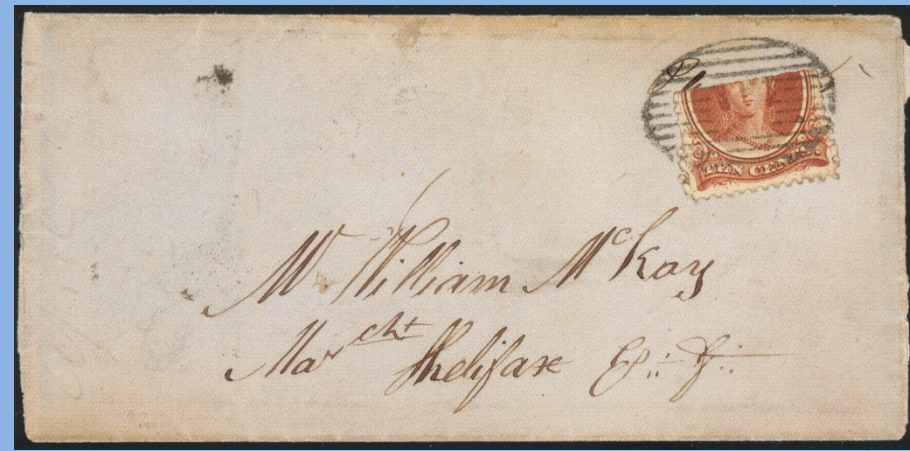 TEN CENTS
Mr. William McKay
Marcht Halifax